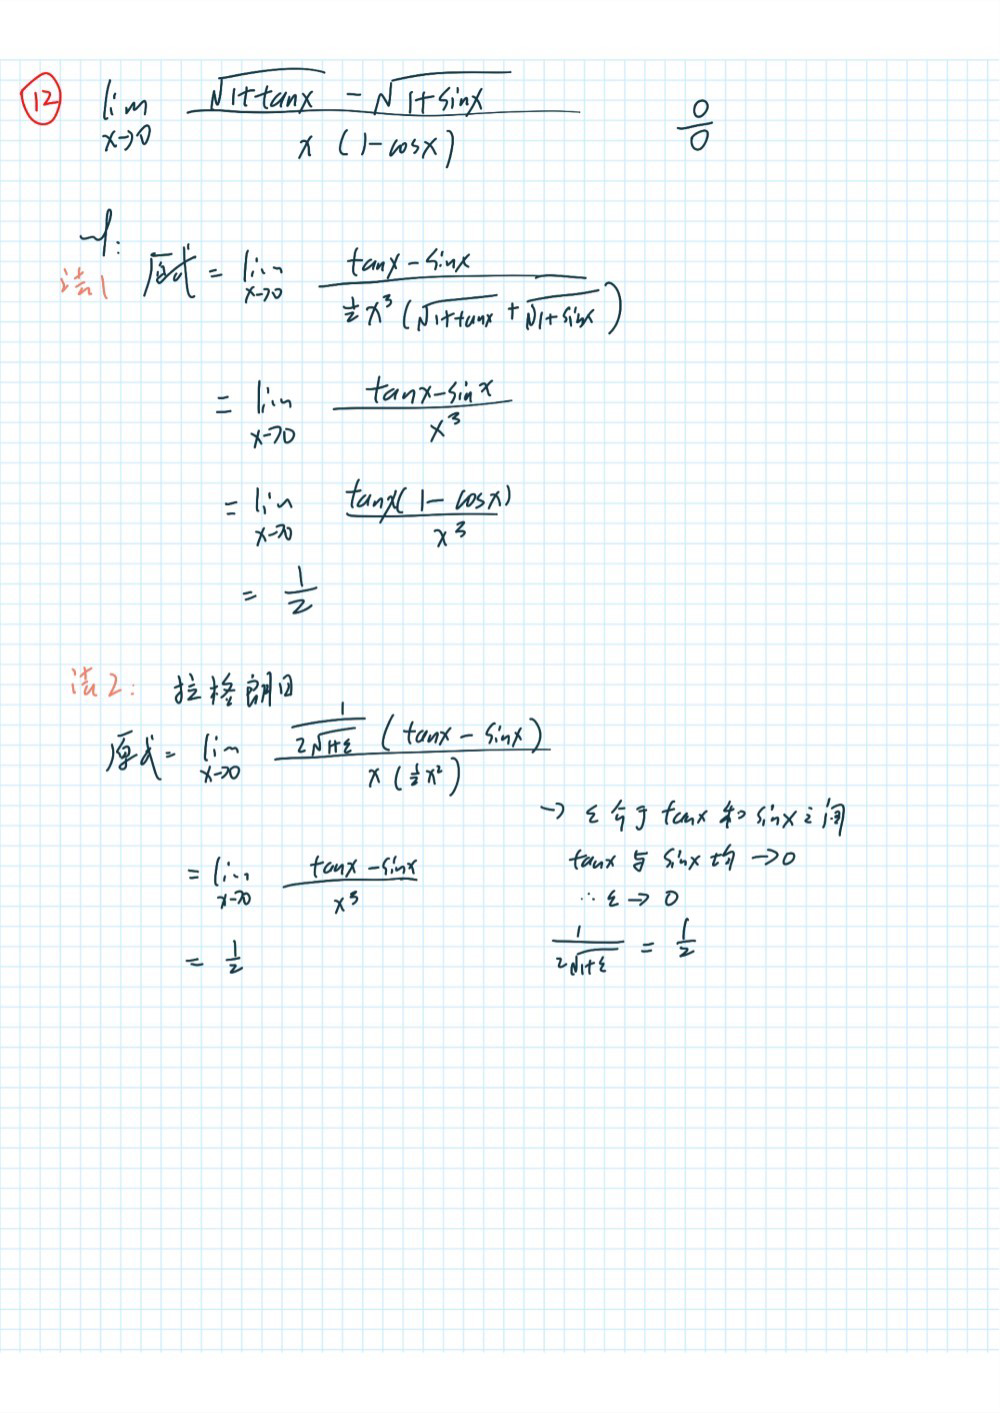 ⑫ lim x→0 (√(1+tanx) - √(1+sinx)) / (x (1-cosx)) 0/0
法1 原式 = lim x→0 (tanx-sinx) / (½x³(√(1+tanx) + √(1+sinx)))
= lim x→0 (tanx-sinx) / x³
= lim x→0 tanx(1-cosx) / x³
= 1/2
法2: 拉格朗日
原式 = lim x→0 (1/(2√(1+ξ)) (tanx - sinx)) / (x (½x²))
→ ξ介于tanx和sinx之间
= lim x→0 (tanx-sinx) / x³
tanx与sinx均→0
∴ ξ→0
= 1/2
1/(2√(1+ξ)) = 1/2